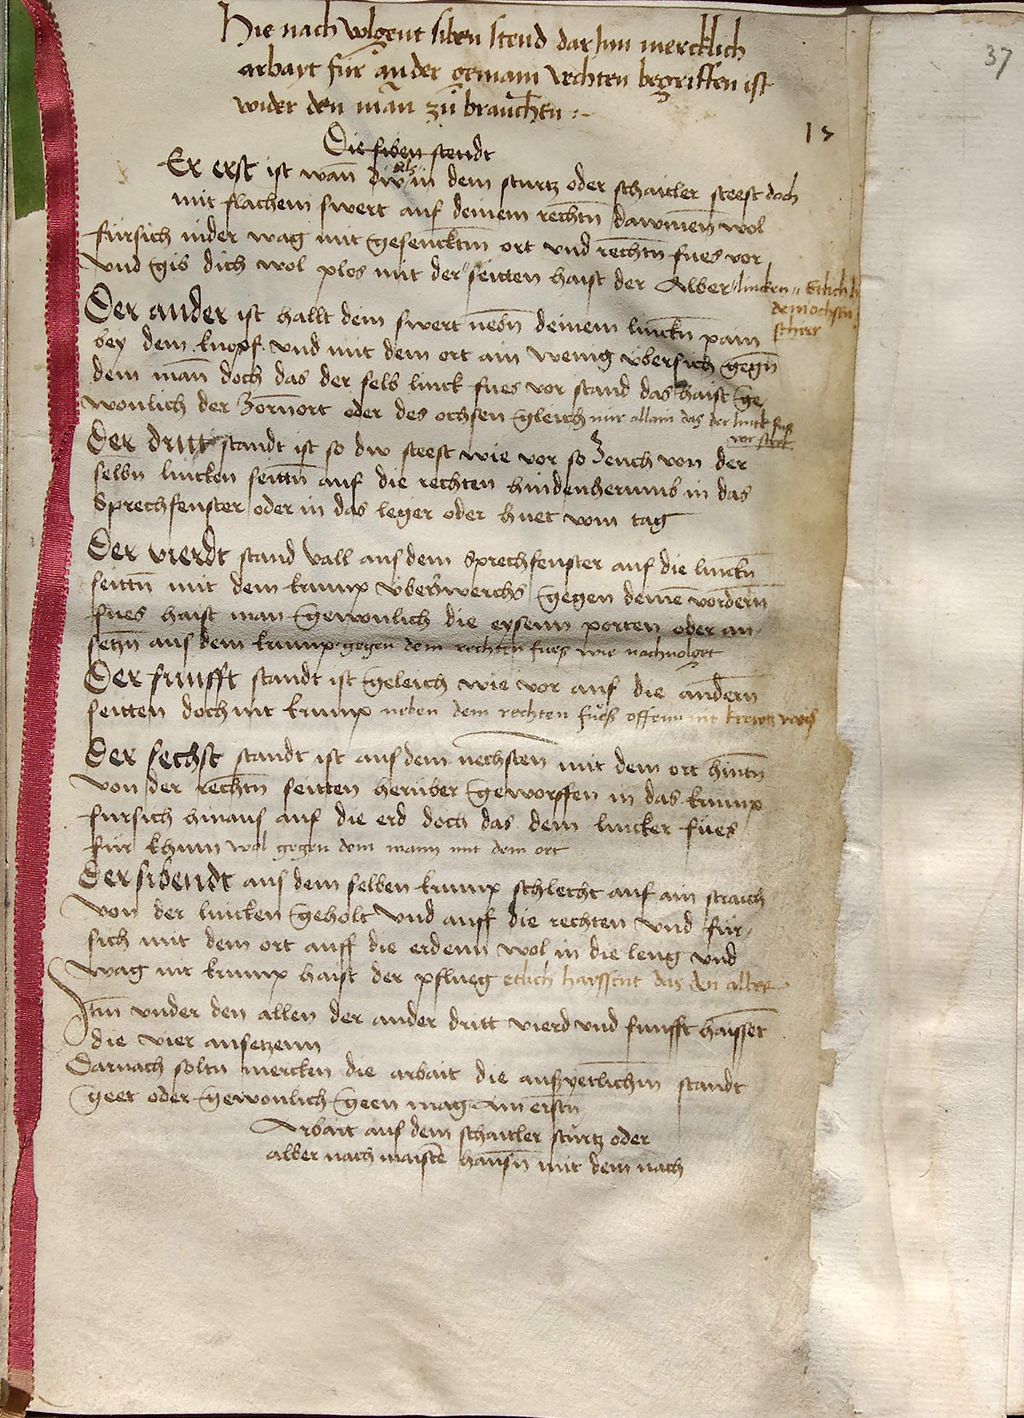 37
Hie nach volgent siben stend dar Inn mercklich
arbayt für ander gemain vechten begriffen ist
wider den man zů brauchen
13
Die siben stendt
Er erst ist wan dw in dem sturtz oder schaitler steest doch
mit flachem swert auf deinem rechtn dawmen wol
fürsich nider wag mit gesencktm ort vnd rechtn fues vor
vnd gib dich wol plos mit der seitten haist der Alber lincken Etlich
dem ochsen
Der ander ist hallt dem swert nebn deinem linckn pain
bey dem knopf vnd mit dem ort ain wenig vbersich gegn
dem man doch das der selb linck fues vor stand das haist ge
wonlich der Zornort oder des ochsen gleich nur allain das der linck fuß
vor steet
Der dritt standt ist so dw steest wie vor so Zeuch von der
selbn lincken seittn auf die rechten hindenherumb in das
Sprechfenster oder in das leger oder huet vom tag
Der vierdt stand vall aus dem sprechfenster auf die linckn
seittn mit dem krump vberwerchs gegen deine vordern
fues haist man gewonlich die eysenn porten oder an
setzn aus dem krump gegen dem rechten fuess wie nachvolgt
Der funfft standt ist geleich wie vor auf die andern
seitten doch nit krump neben dem rechten fuess offenn
Der sechst standt ist aus dem nechsten mit dem ort hintn
von der rechtn seitten herüber geworffen in das krump
fürsich hinaus auf die erd doch das dem lincker fues
für khum wol gegen dem mann mit dem ort
Der sibendt aus dem selben krump schlecht auf ain straich
von der lincken geholt vnd auff die rechten vnd für
sich mit dem ort auff die erdenn wol in die leng vnd
wag nit krump haist der pflueg etlich haissent das den alber
Itm vnder den allen der ander dritt vierd vnd funfft haisset
die vier ansetzenn
Darnach soltu mercken die arbait die aus yetlichm standt
geet oder gewonlich geen mag Am erstn
Arbait aus dem schaitler sturtz oder
alber nach maiste hansn mit dem nach